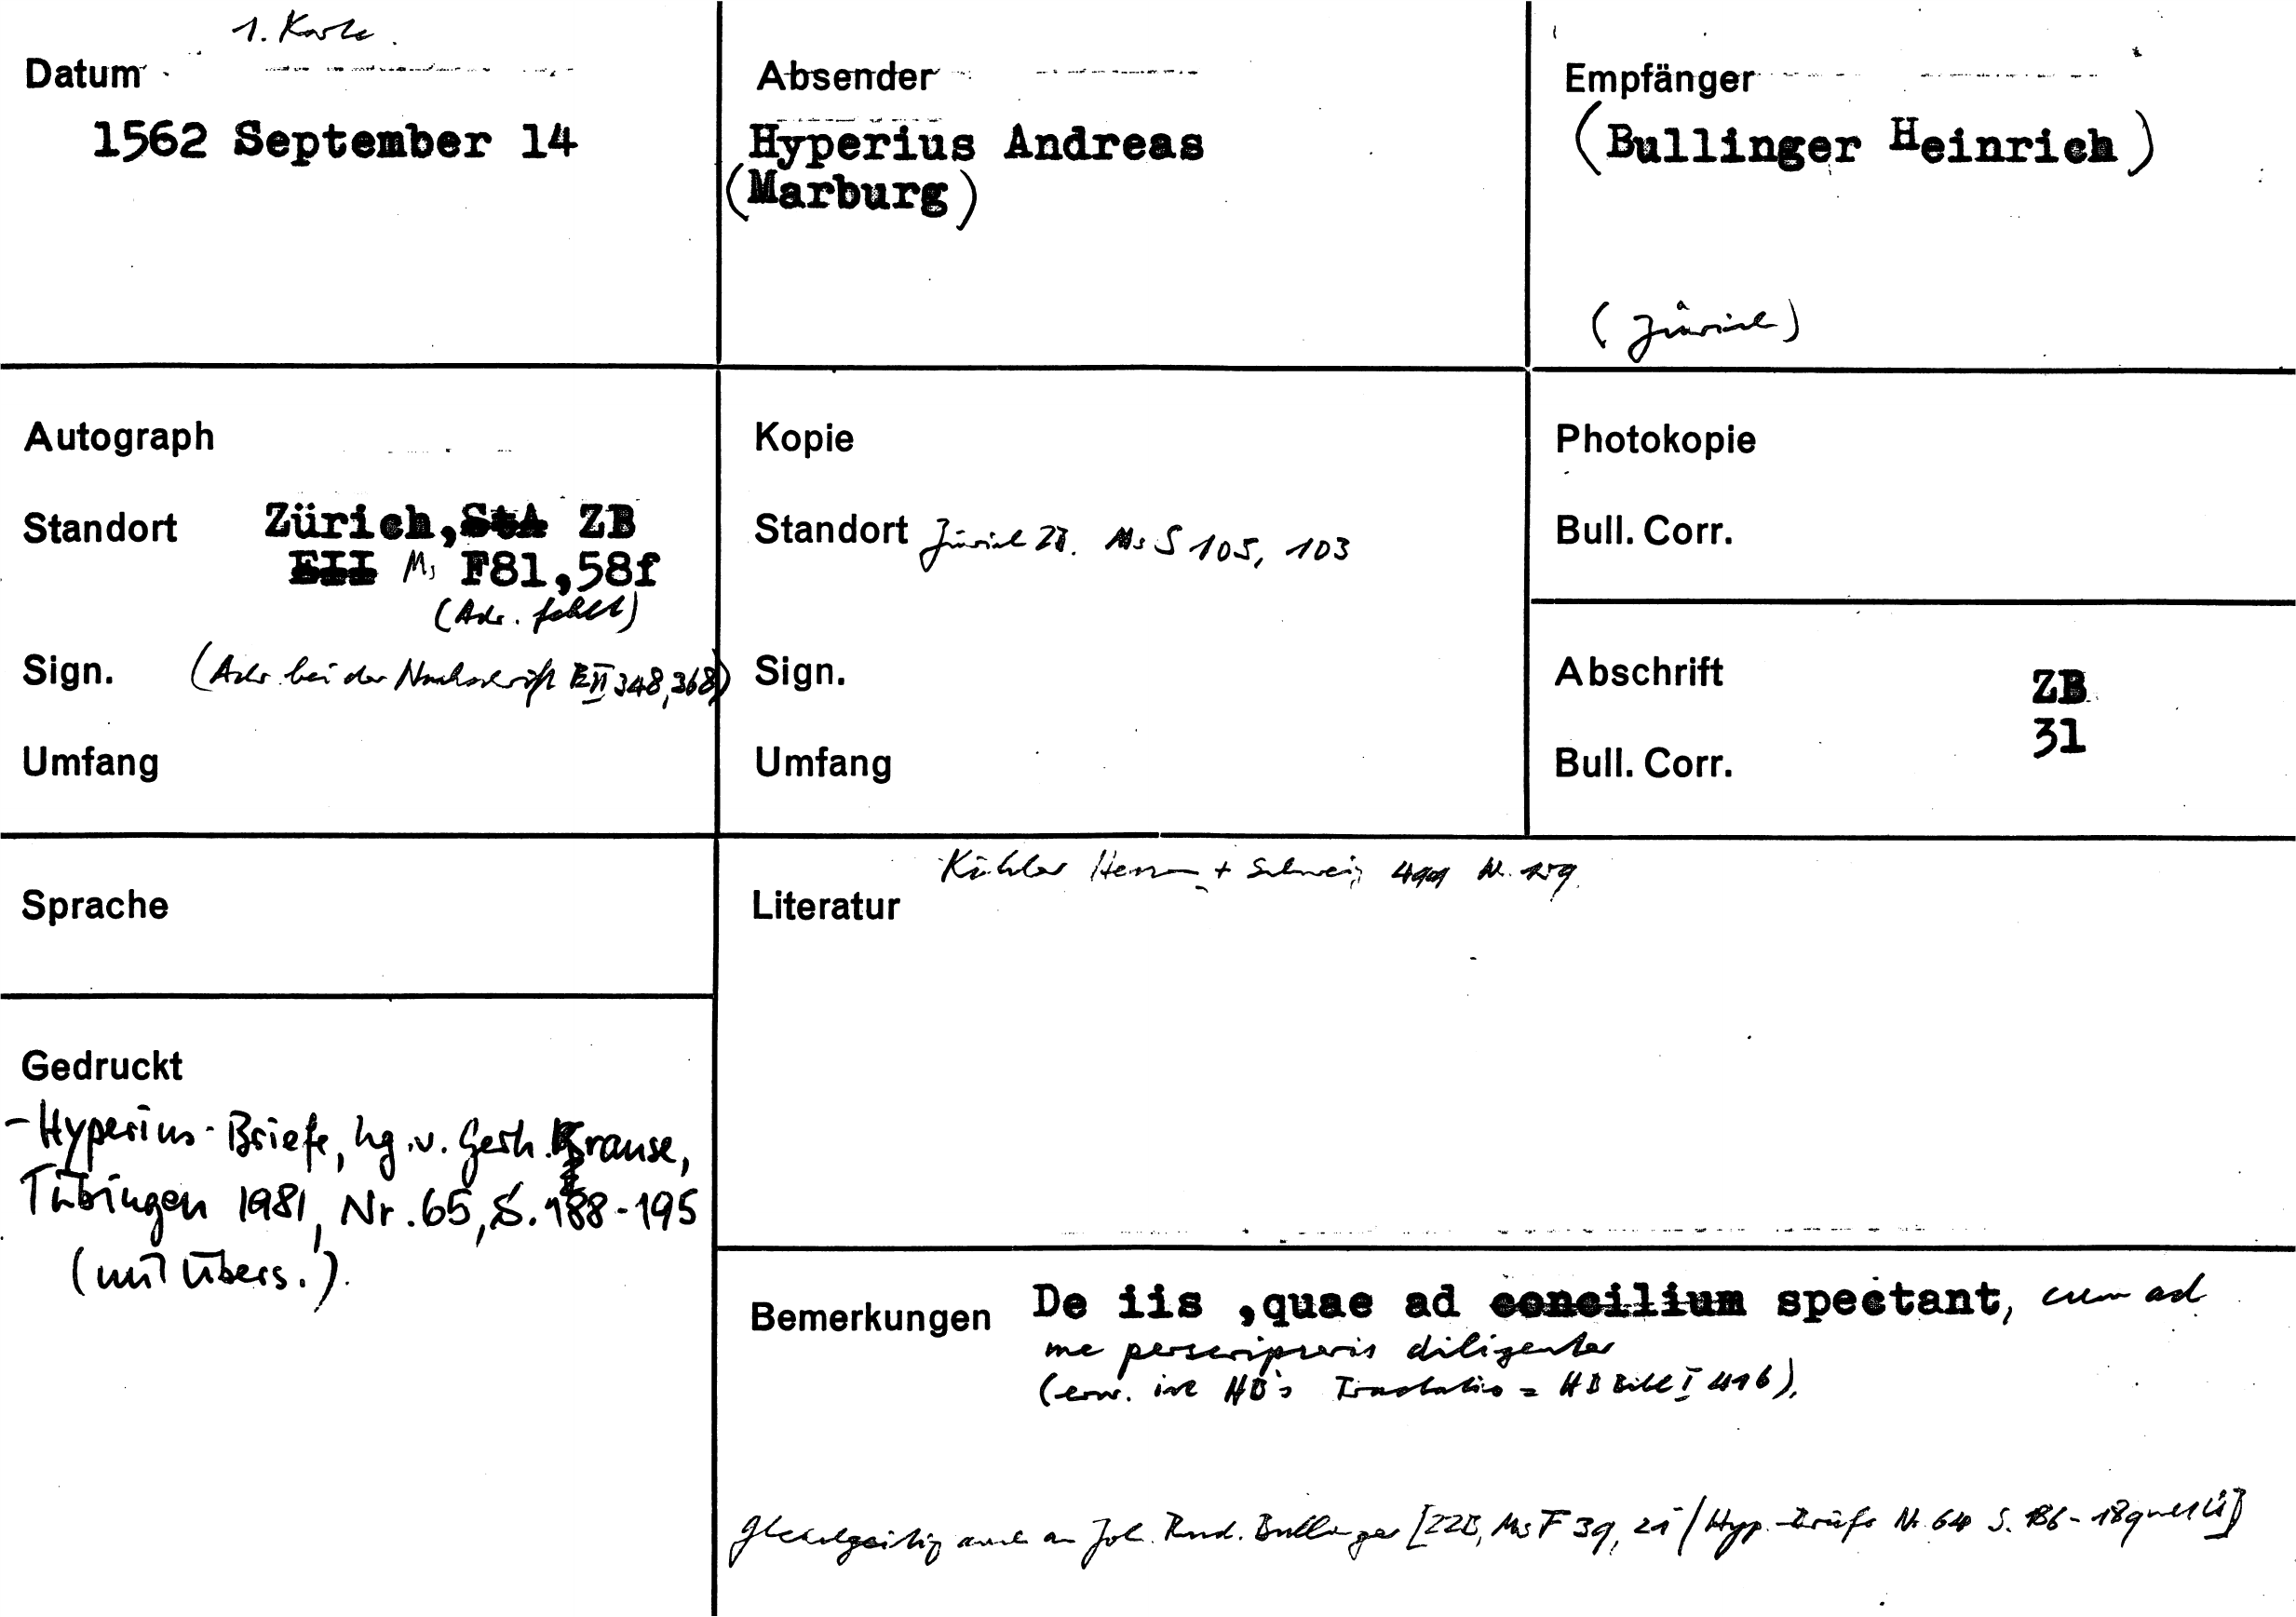 1. Karte.
Datum
1562 September 14
Absender
Hyperius Andreas
(Marburg)
Empfänger
(Bullinger Heinrich)
(Zürich)
Autograph
Standort Zürich, StA ZB
EII Ms F81,58f
(Adr. fehlt)
Sign. (Adr. bei der Nachschrift EII 348, 368)
Umfang
Kopie
Standort Zürich ZB. Ms S 105, 103
Sign.
Umfang
Photokopie
Bull. Corr.
Abschrift ZB
31
Bull. Corr.
Sprache
Gedruckt
- Hyperius-Briefe, hg. v. Gerh. Krause,
Tübingen 1981, Nr. 65, S. 188-195
(mit Übers.).
Literatur
+ Schweiz
Bemerkungen De iis ,quae ad concilium spectant, cum ad
me perscripseris diligenter
(erw. ist HB's Tractatio = HB Bibl I 416).
Gleichzeitig auch an Joh. Rud. Bullinger [ZZB, Ms F 39, 21 / Hyp.-Briefe Nr. 64 S. 186-189